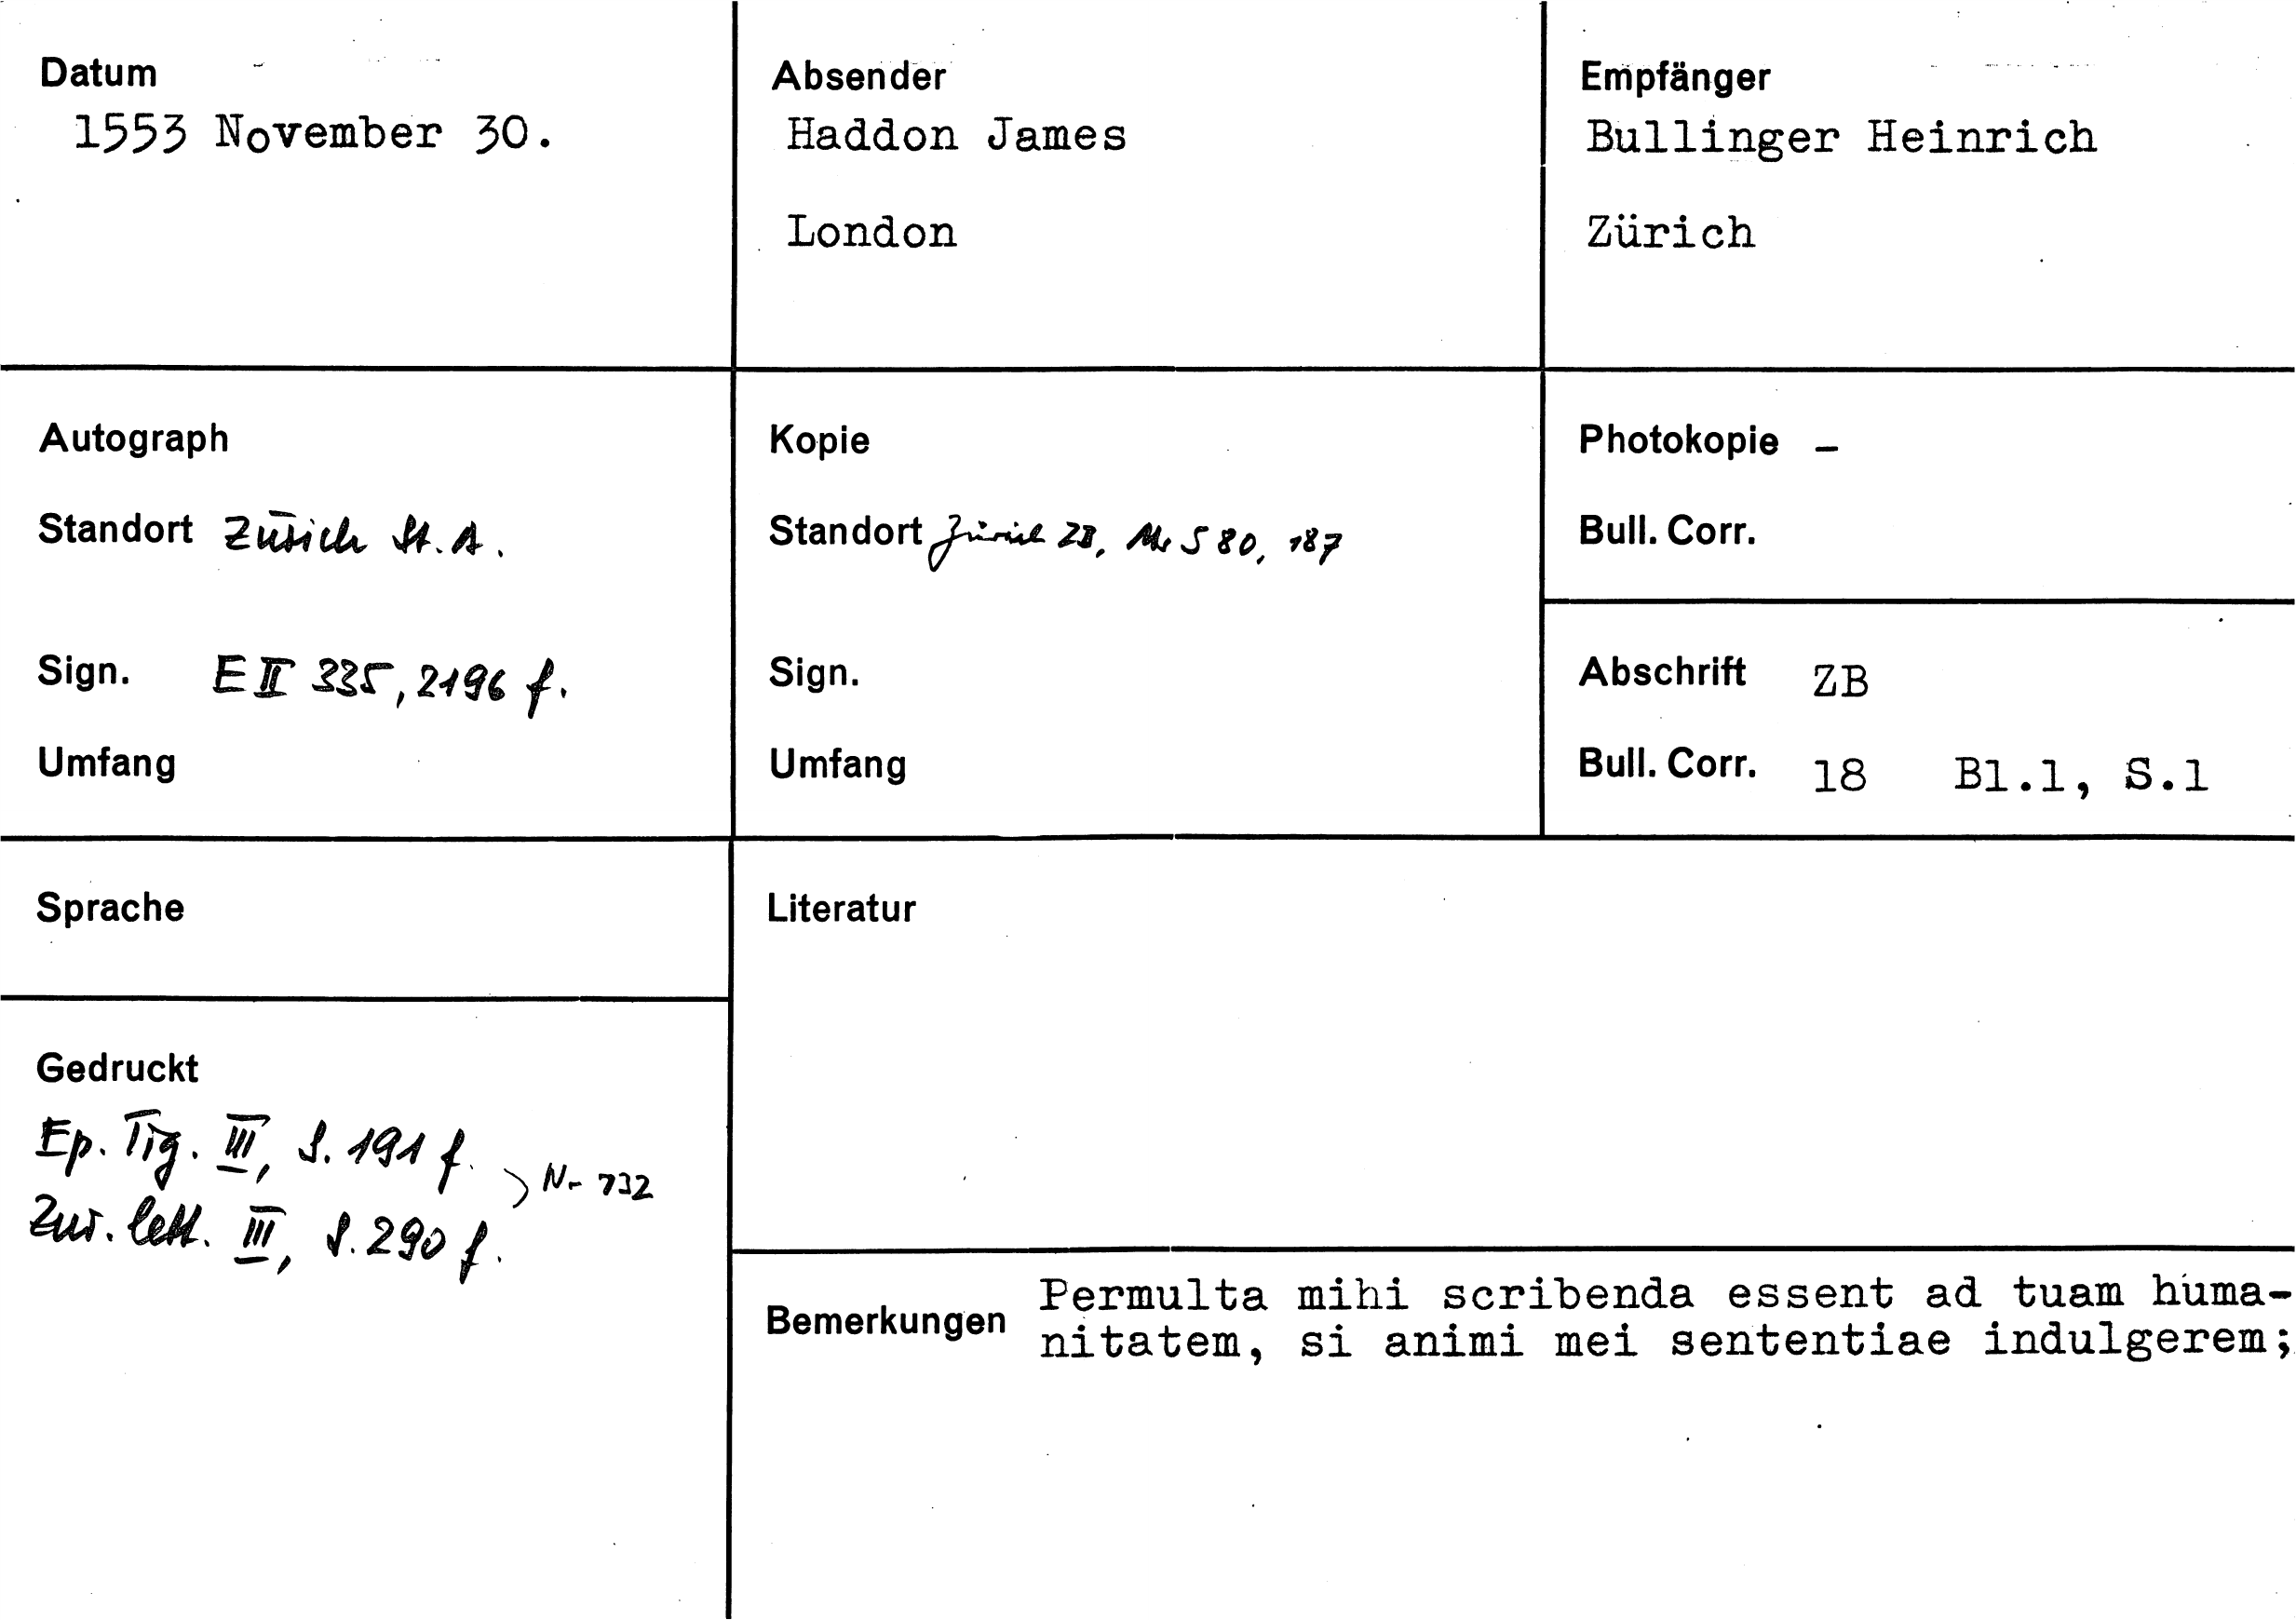 Datum
1553 November 30.
Absender
Haddon James
London
Empfänger
Bullinger Heinrich
Zürich
Autograph
Standort Zürich St. A.
Sign. E II 335, 2196 f.
Umfang
Kopie
Standort Zürich ZB, Ms S 80, 187
Sign.
Umfang
Photokopie –
Bull. Corr.
Abschrift ZB
Bull. Corr. 18 Bl.1, S.1
Sprache
Literatur
Gedruckt
Ep. Tig. III, S. 191 f.
Zur. lett. III, S. 290 f.
> Nr 132
Bemerkungen Permulta mihi scribenda essent ad tuam huma-
nitatem, si animi mei sententiae indulgerem;